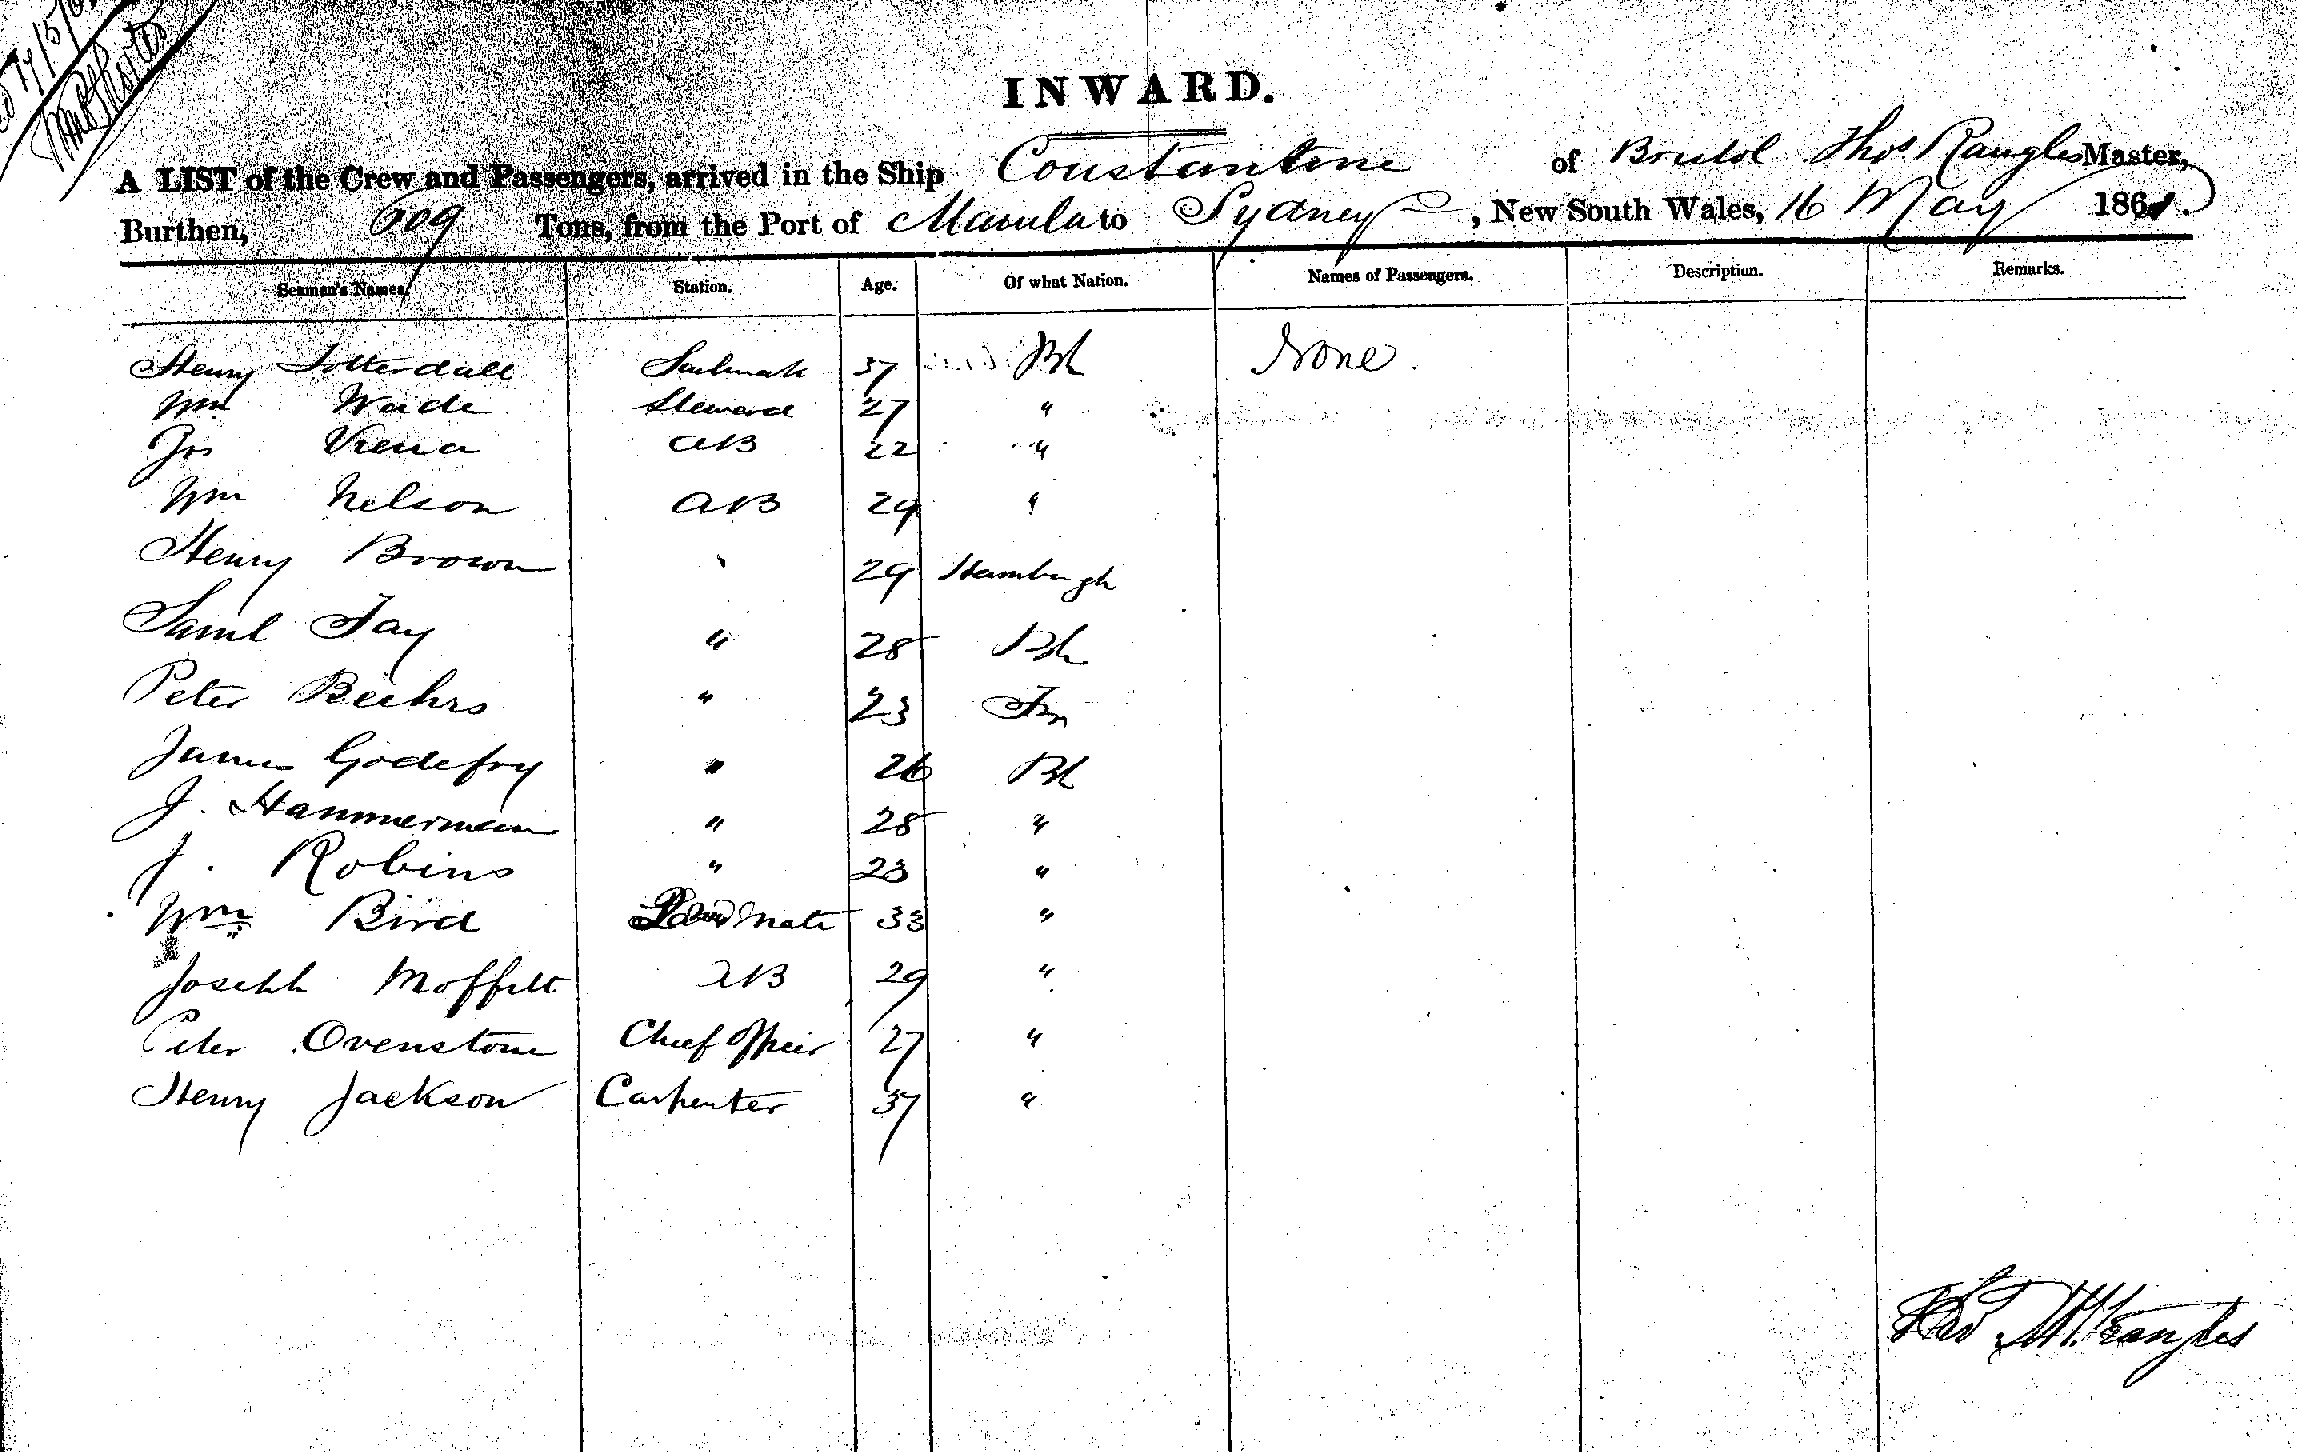 INWARD.
A LIST of the Crew and Passengers, arrived in the Ship Constantine of Bristol Thos Rangles Master,
Burthen, 609 Tons, from the Port of Manila to Sydney, New South Wales, 16 May 1861.
Seaman's Names. Station. Age. Of what Nation. Names of Passengers. Description. Remarks.
Henry Totterdall Sailmak 37 Bh None.
Wm Wade Steward 27 "
Jos Viena AB 22 "
Wm Nelson AB 24 "
Henry Brown " 29 Hamburgh
Saml Fay " 28 Bh
Peter Beehrs " 23
James Godefry " 26 Bh
J. Hammerman " 28 "
J. Robins " 23 "
Wm Bird 2nd Mate 33 "
Joseph Moffitt AB 29 "
Peter Ovenstone Chief Officer 27 "
Henry Jackson Carpenter 37 "